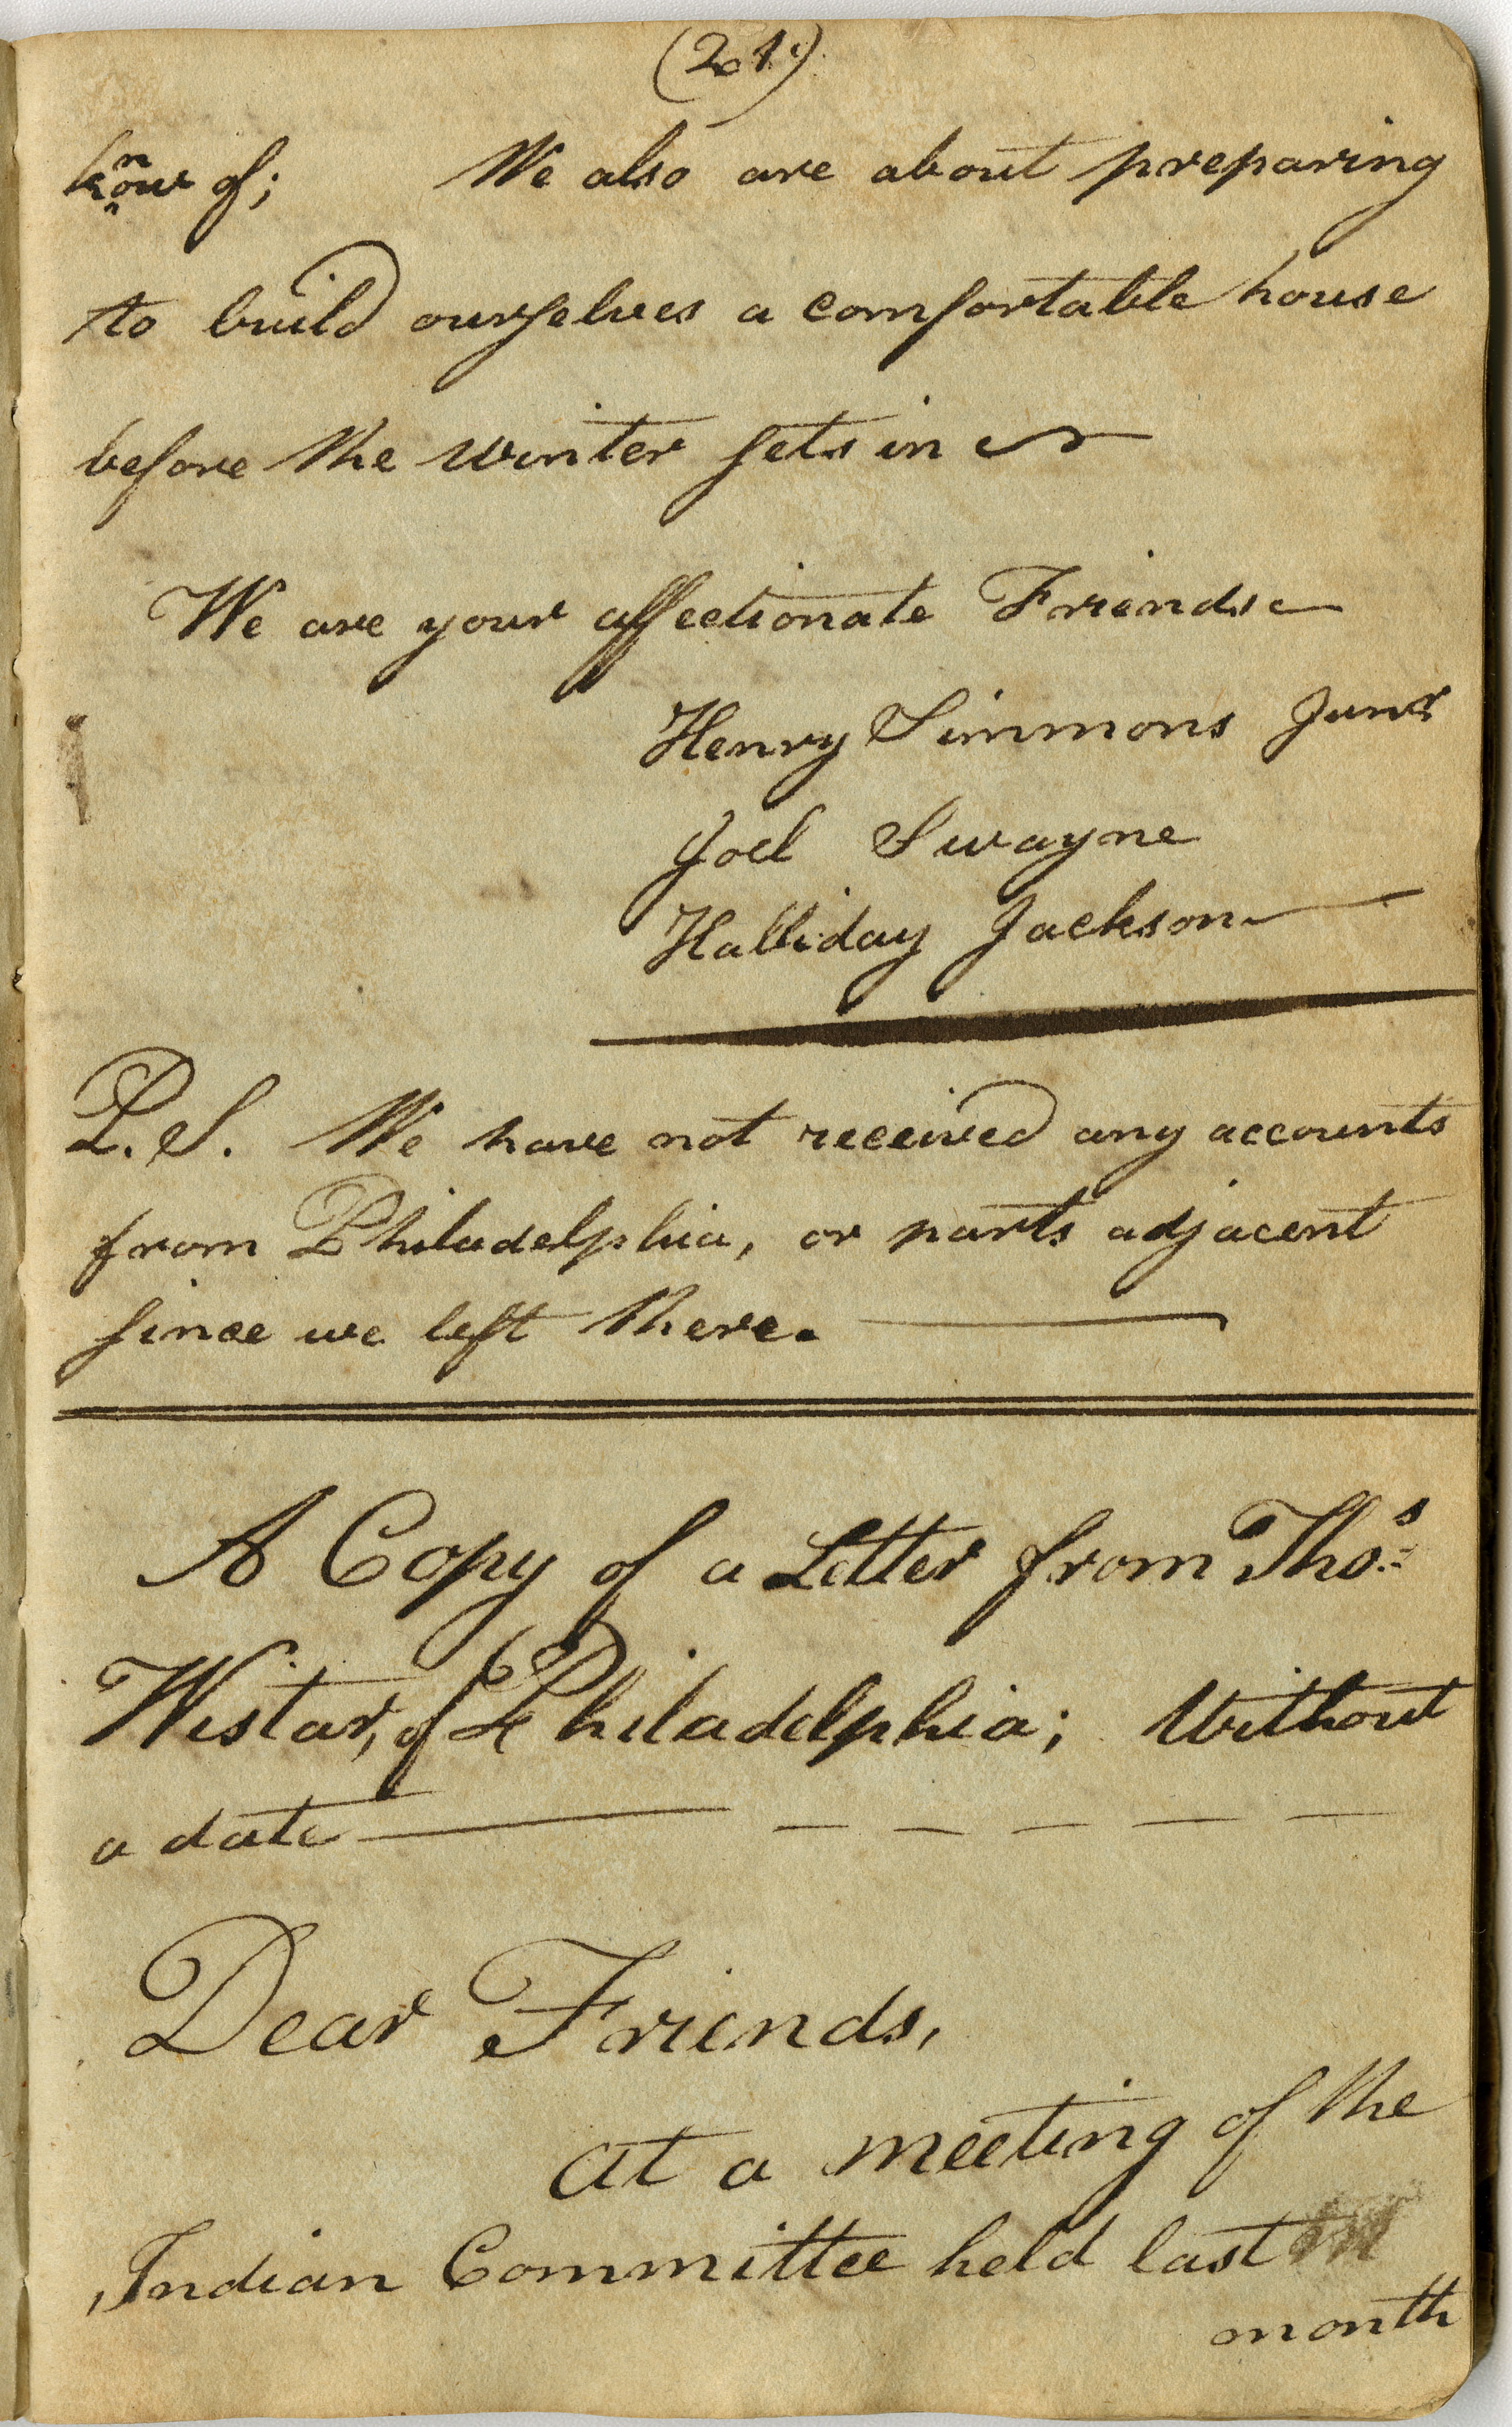 (21.)
know of; We also are about preparing
to build ourselves a comfortable house
before the winter sets in
We are your affectionate Friends
Henry Simmons Junr
Joel Swayne
Halliday Jackson
P.S. We have not received any accounts
from Philadelphia, or parts adjacent
since we left there.
A Copy of a Letter from Thos
Wistar, of Philadelphia; Without
a date
Dear Friends,
at a meeting of the
Indian Committee held last
month